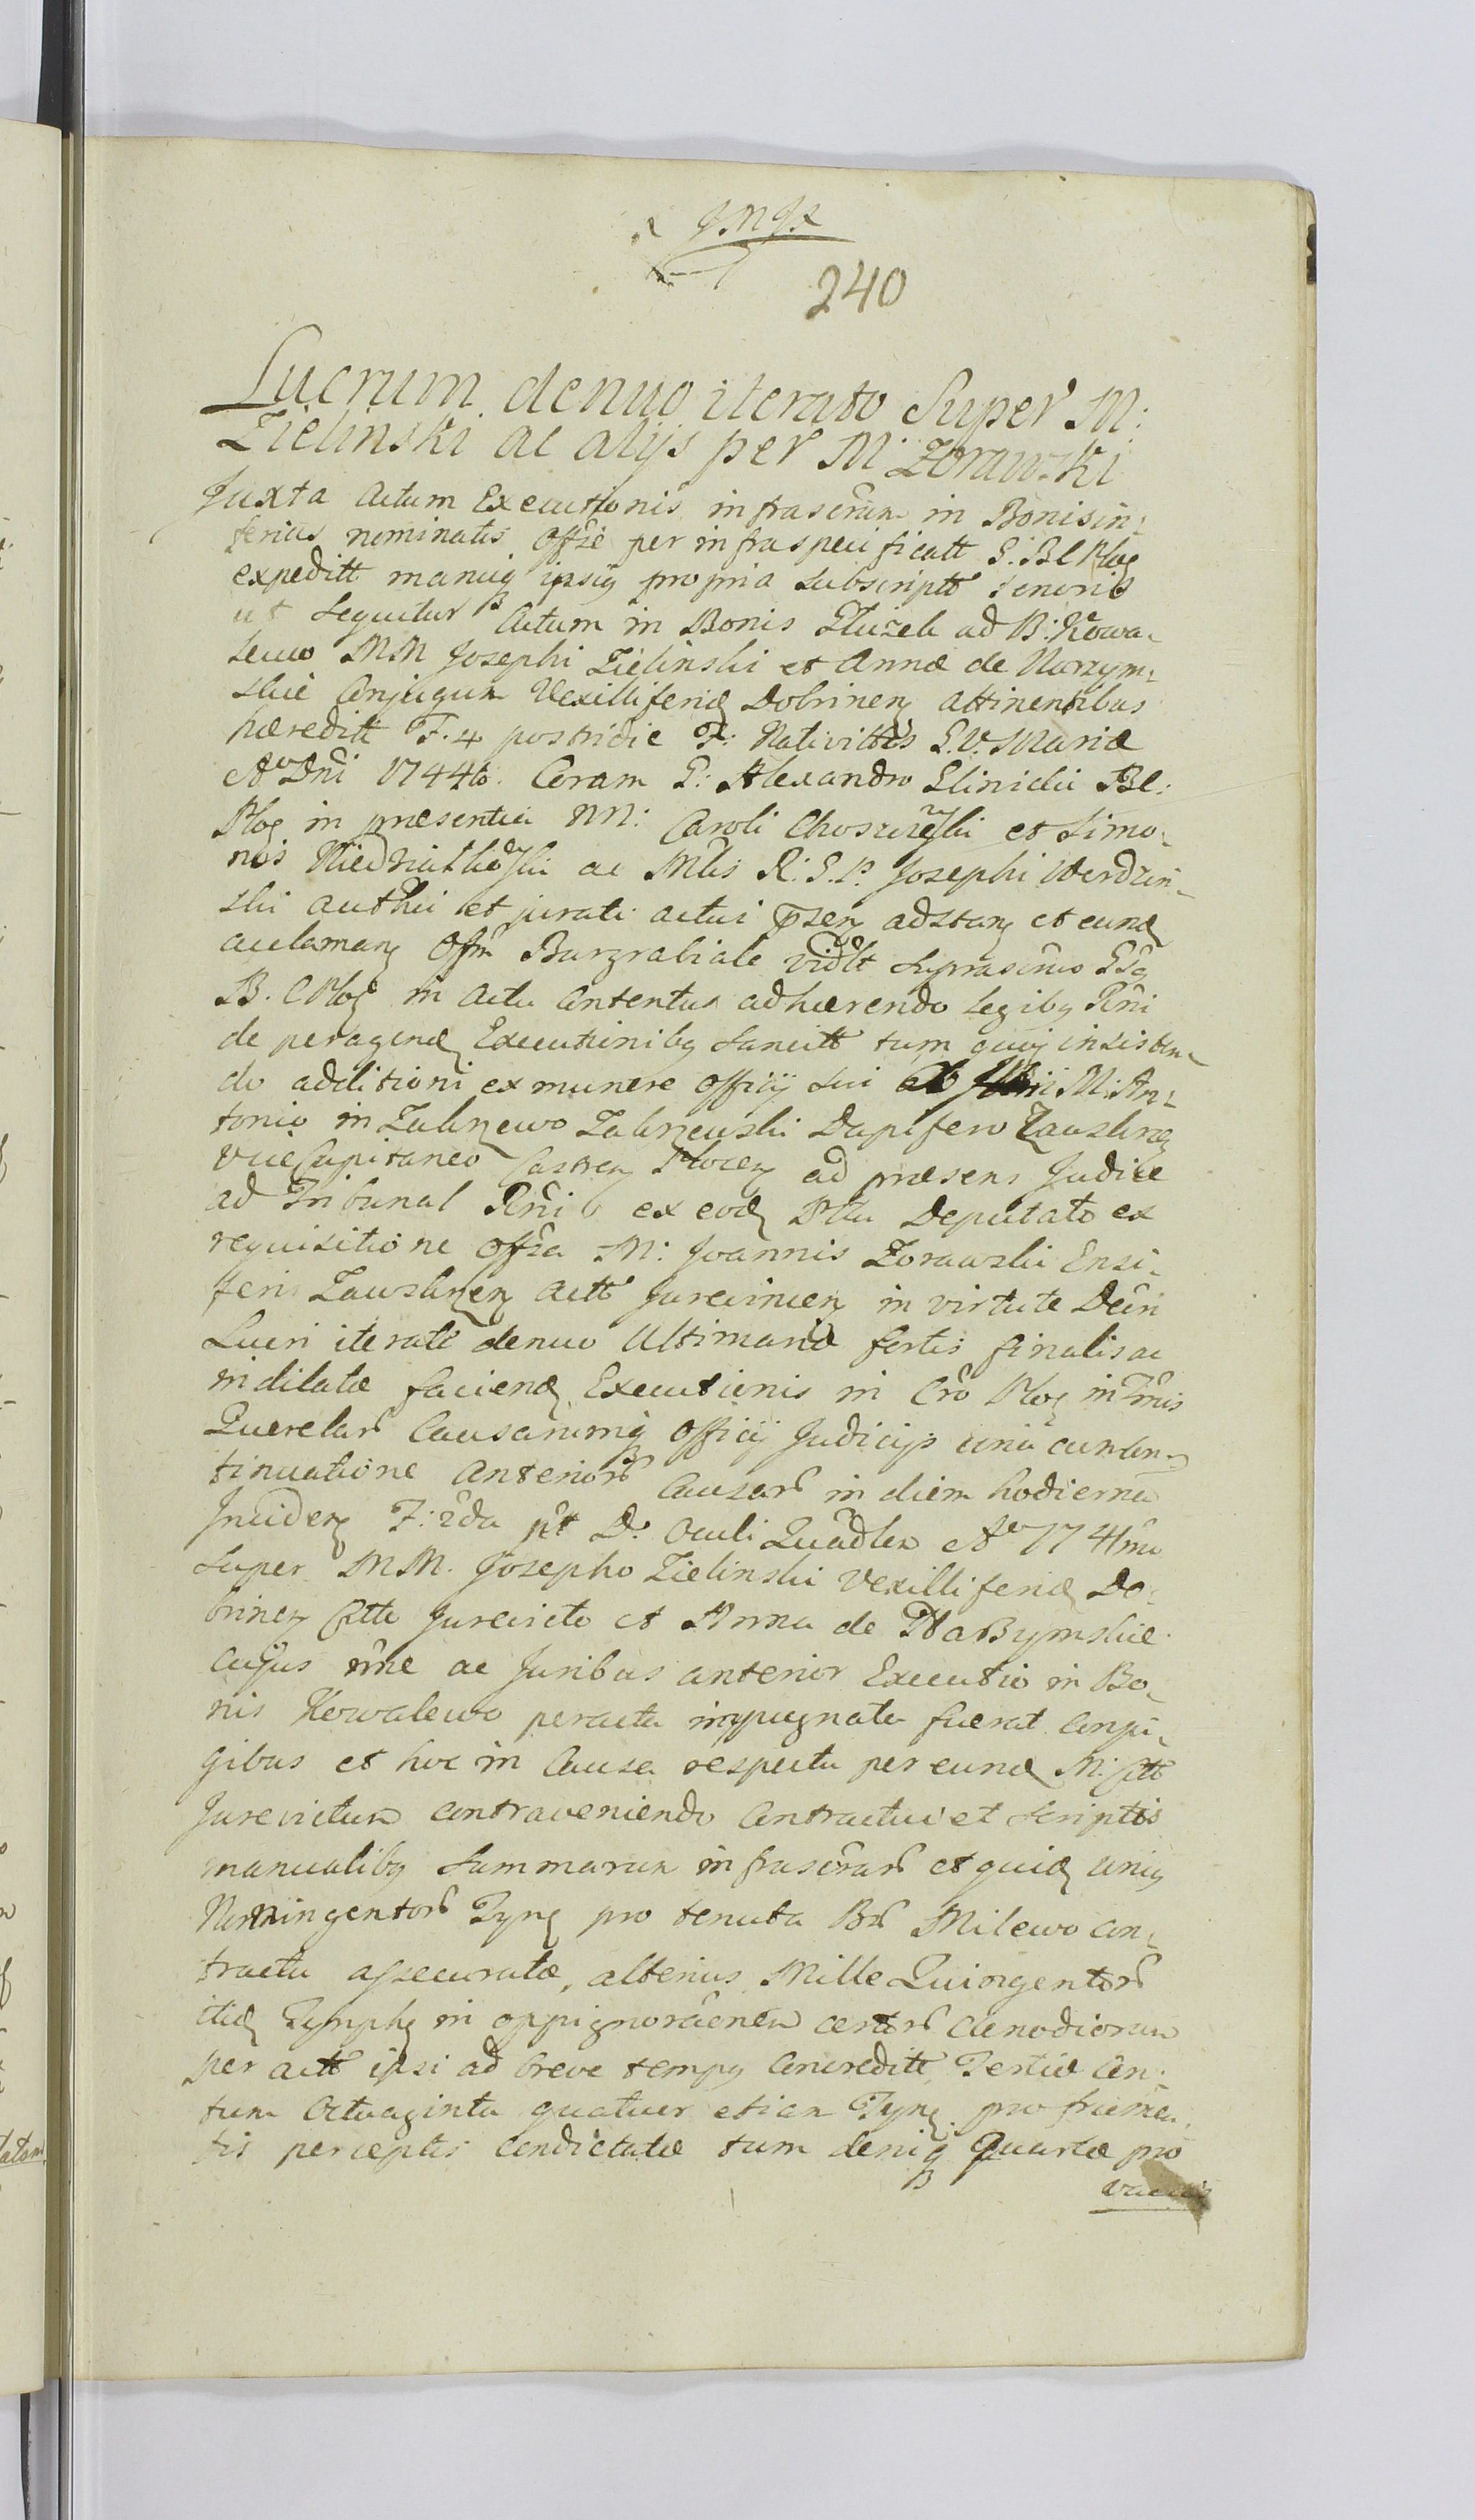 240
Lucrum denuo iterato Super M:
Zielinski ac alijs per M: Zorawski
Juxta Actum Executionis infrascrum in Bonis in:
ferius nominatis offse per infraspecificatt G: BC Ploc
expeditt manuq ipsiq propria subscriptt tenoris
ut sequitur Actum in Bonis Gluzek ad B: Kowa-
lewo MM Josephi Zielinski et Annæ de Narzym-
skie Conjugum Vexilliferiæ Dobrinen attinentibus
hæreditt F. 4 postridie F: Nativittis B.V. Mariæ
Ao Dni 1744to. Coram G: Alexandro Glinicki BC:
Ploc in præsentia NN: Caroli et Simo-
nis ac Mlis R: G. P. Josephi Werdzin-
ski et jurati actui psen adstan et eund
acclaman Offm Burgrabiale vidlt suprascrius GG
B. C Ploc in Actu Contentus adhærendo legibq Rni
de peragend Executionibq Sancitt tum quoq insisten-
do additioni ex munere officij sui M: An-
tonio in Zabrzewski Dapifero Zawskrzen
ViceCapitaneo Castren Plocen ad præsens Judice
ad Tribunal Rni ex eod Pltu Deputato ex
requisitione offsa M: Joannis Zorawski Ensi-
feri Zawskrzen Actt Jurevincen in virtute Decri
Lucri iterati denuo Ultimariæ fortis finalis ac
indilatæ faciend Executionis in Cro Ploc in Tmis
Querelar Causarumq officij Judicijs una cum Con-
tinuatione Anterior Causar in diem hodiernu
Inciden F: 2da pt D. Oculi Quadlem Ao 1744to
super MM. Josepho Zielinski Vexilliferiæ Do-
brinen Ctto Jurevicto et Anna de Narzymskie
Cujus nne ac Juribus anterior Executio in Bo-
nis Kowalewo peracta impugnata fuerat Conju-
gibus et hoc in Causa respectu per eund M: Ctt
Jurevictum contraveniendo Contractui et Scriptis
manualibq Summarum infrascrar et quid uniq
Nonningentor Tynf pro tenuta Br Milewo con-
tractu assecuratæ, alterius Mille Quingentor
itid Tymphq in oppignoraonem certor clenodiorum
per actt ipsi ad breve tempq concreditt Tertiæ Cen-
tum Octuaginta quatuor etiam Tynf pro frumen-
tis perceptis condictatæ tum deniq Quartæ pro